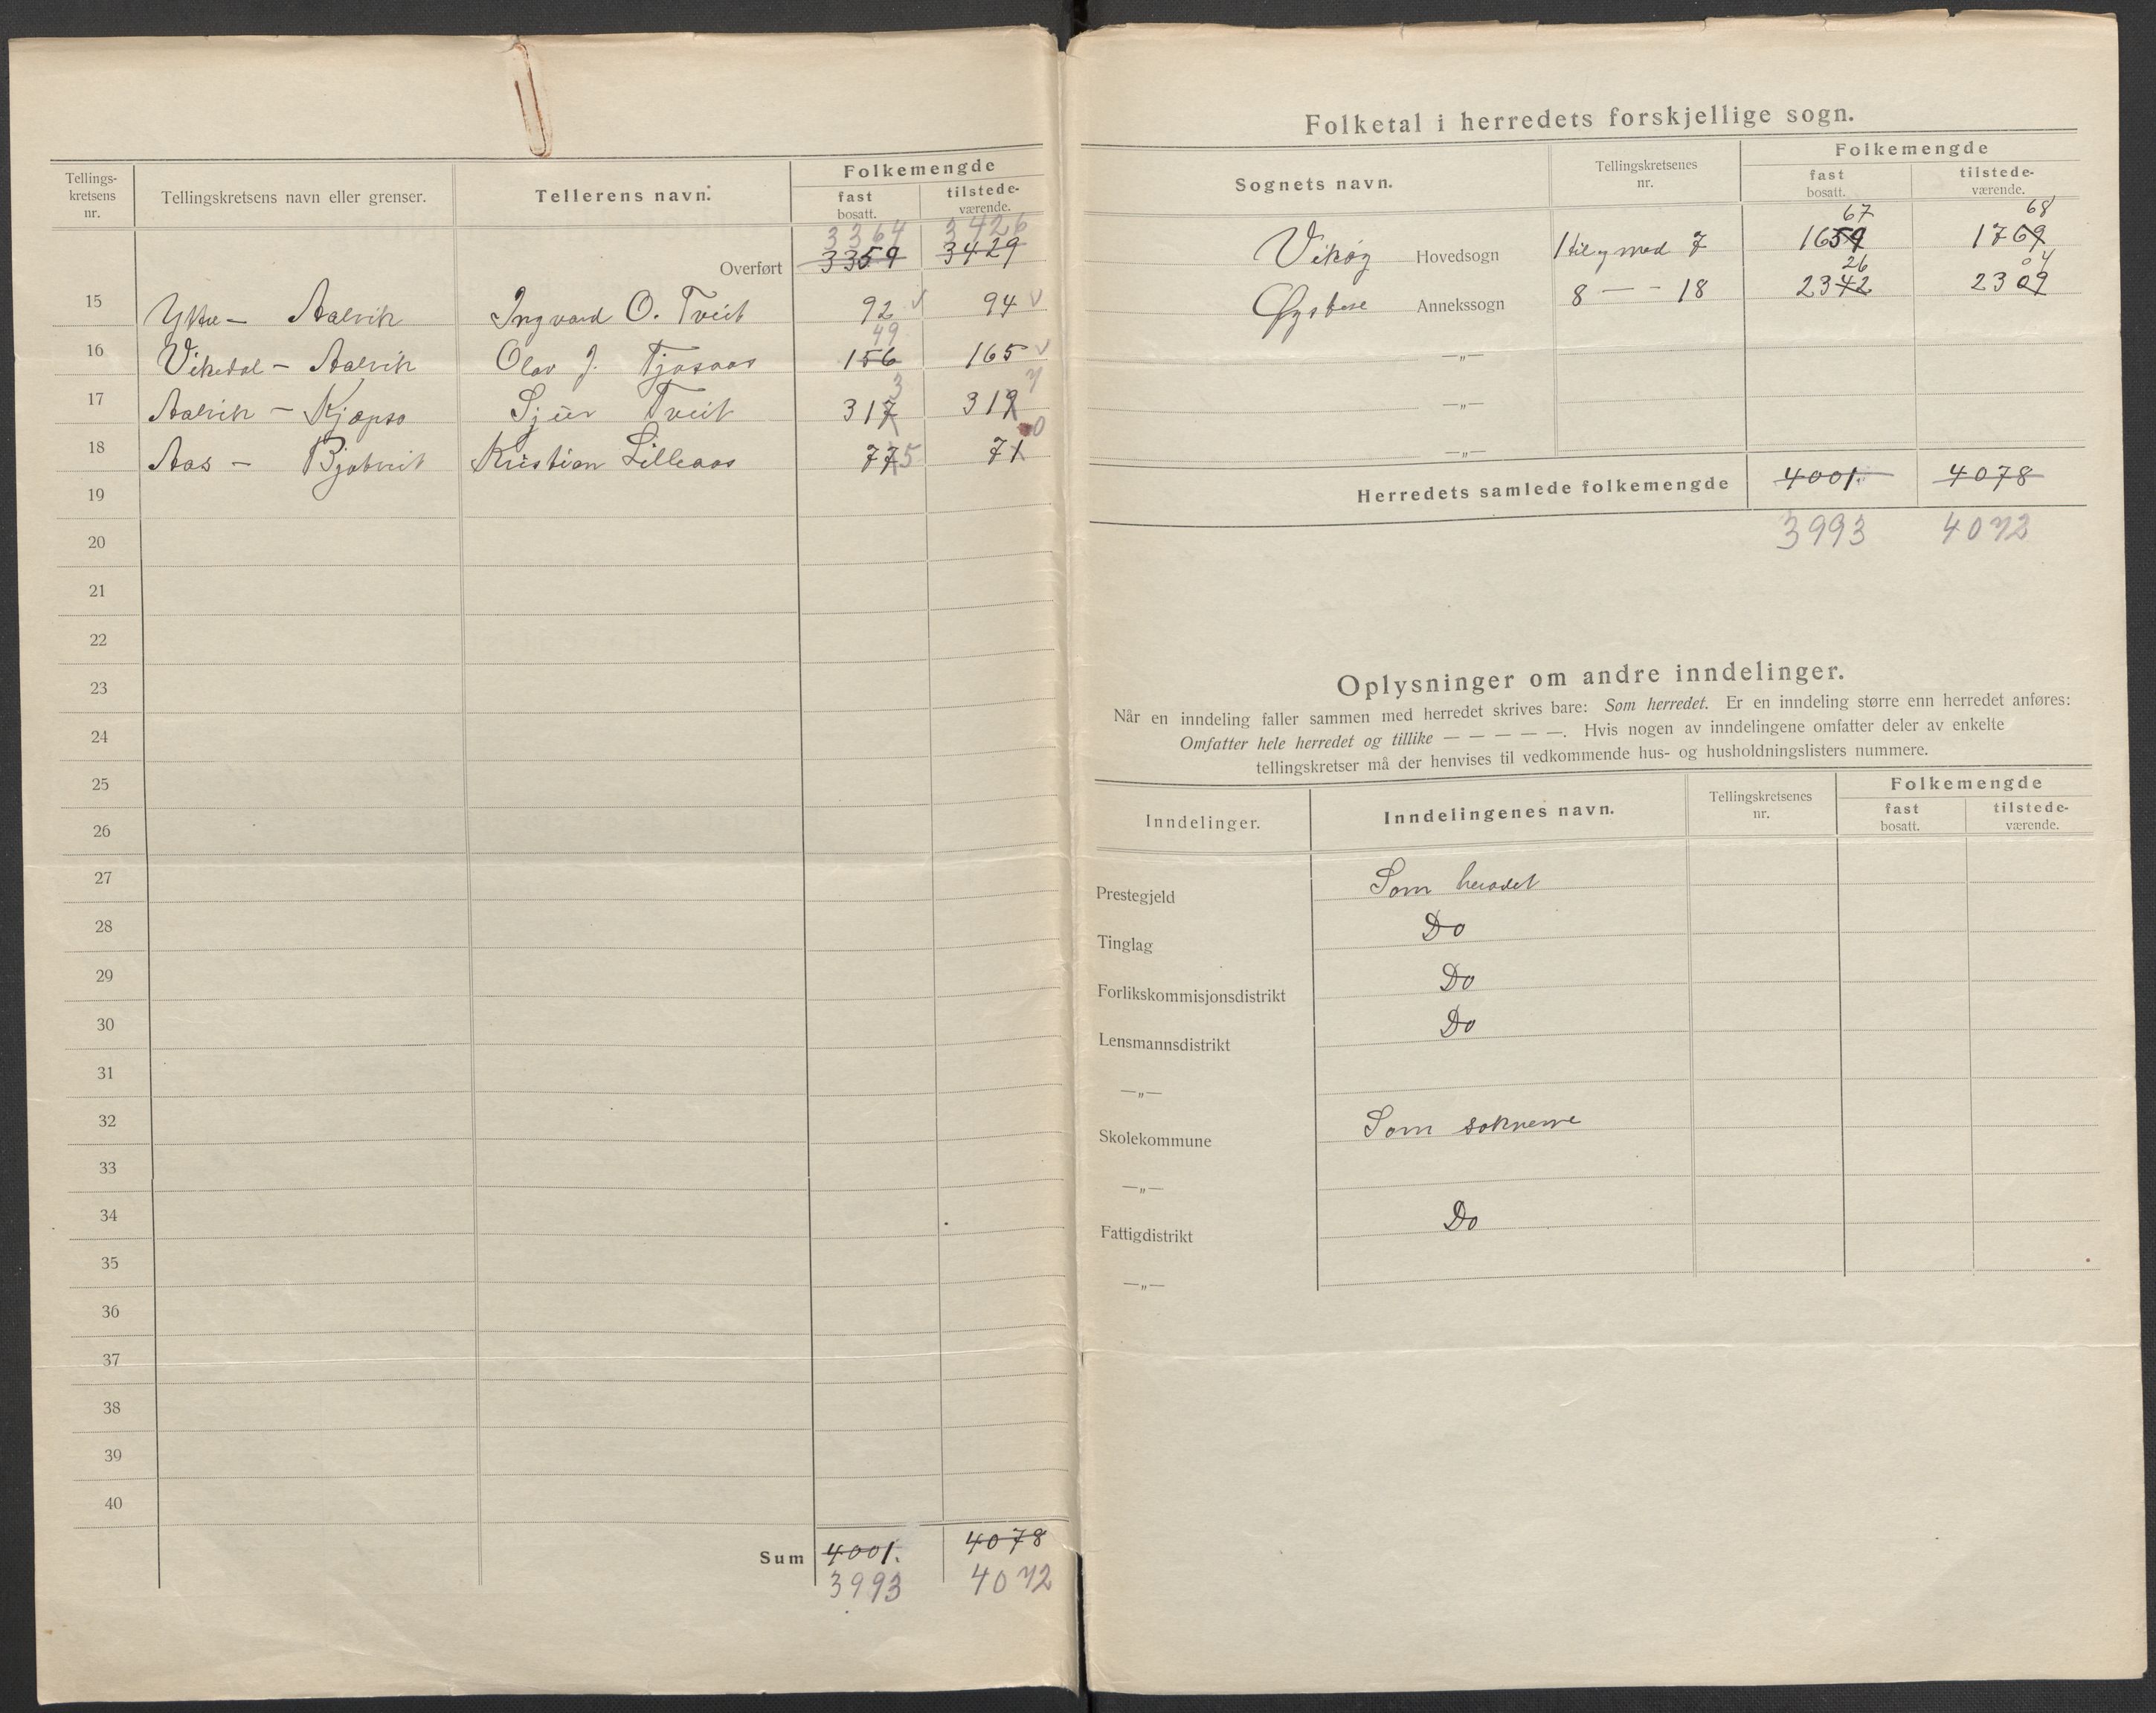 Tellings-
kretsens
nr.
Tellingskretsens navn eller grenser.
Tellerens navn.
Folkemengde
fast
bosatt.
tilstede-
værende.
3364 3426
Overført 3359 3429
15 Ytre - Aalvik Ingvard O. Tveit 92 94
49
16 Vikedal - Aalvik Olav J. 156 165
3 7
17 Aalvik - Kjepso Sjur Tveit 317 319
0
18 Aas - Kristian Lilleaas 77 5 71
19
20
21
22
23
24
25
26
27
28
29
30
31
32
33
34
35
36
37
38
39
40
Sum 4001. 4078
3993 4072
Folketal i herredets forskjellige sogn.
Sognets navn.
Tellingskretsenes
nr.
Folkemengde
fast
bosatt.
tilstede-
værende.
67 68
Vikøy Hovedsogn 1 til og med 7 1659 1769
26 04
Øystese Annekssogn 8 — - 18 2342 2309
—„—
—„—
—„—
Herredets samlede folkemengde 4001. 4078
3993 4072
Oplysninger om andre inndelinger.
Når en inndeling faller sammen med herredet skrives bare: Som herredet. Er en inndeling større enn herredet anføres:
Omfatter hele herredet og tillike — — — — —. Hvis nogen av inndelingene omfatter deler av enkelte
tellingskretser må der henvises til vedkommende hus- og husholdningslisters nummere.
Inndelinger.
Inndelingenes navn.
Tellingskretsenes
nr.
Folkemengde
fast
bosatt.
tilstede-
værende.
Prestegjeld Som heradet
Tinglag Do
Forlikskommisjonsdistrikt Do
Lensmannsdistrikt Do
—„—
Skolekommune Som soknerne
—„—
Fattigdistrikt Do
—„—